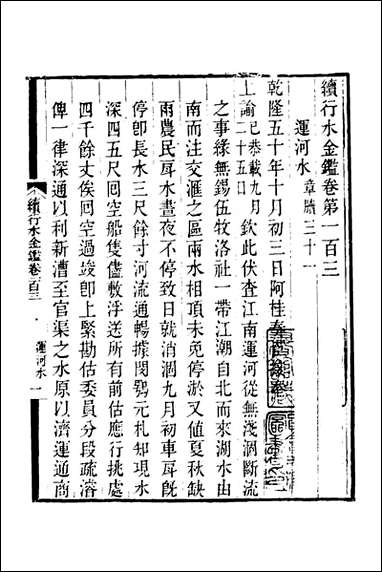 續行水金鑑卷第一百三
運河水章牘三十一
乾隆五十年十月初三日阿桂奏
上諭已恭載九月二十五日欽此伏查江南運河從無淺涸斷流
之事緣無錫伍牧洛社一帶江潮自北而來湖水由
南而注交滙之區兩水相頂未免停淤又值夏秋缺
雨農民戽水晝夜不停致日就消涸九月初車戽旣
停卽長水三尺餘寸河流通暢據閔鶚元札知現水
深四五尺囘空船隻儘敷浮送所有前估應行挑處
四千餘丈俟囘空過竣卽上緊勘估委員分段疏濬
俾一律深通以利新漕至官渠之水原以濟運通商
續行水金鑑卷一百三
運河水
一